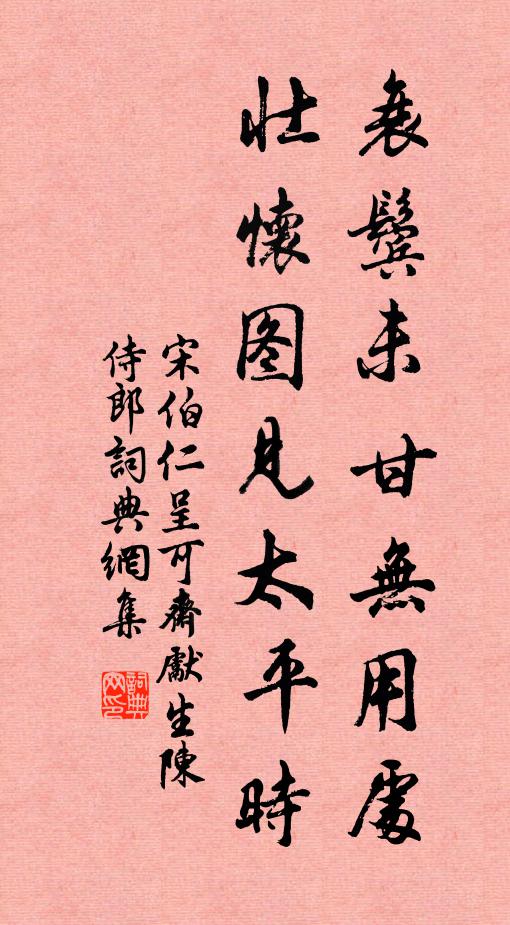 衰鬓未甘無用處
壯懷图見太平時
宋伯仁呈可齋獻生陳
侍郎詞典網集
詞典網印